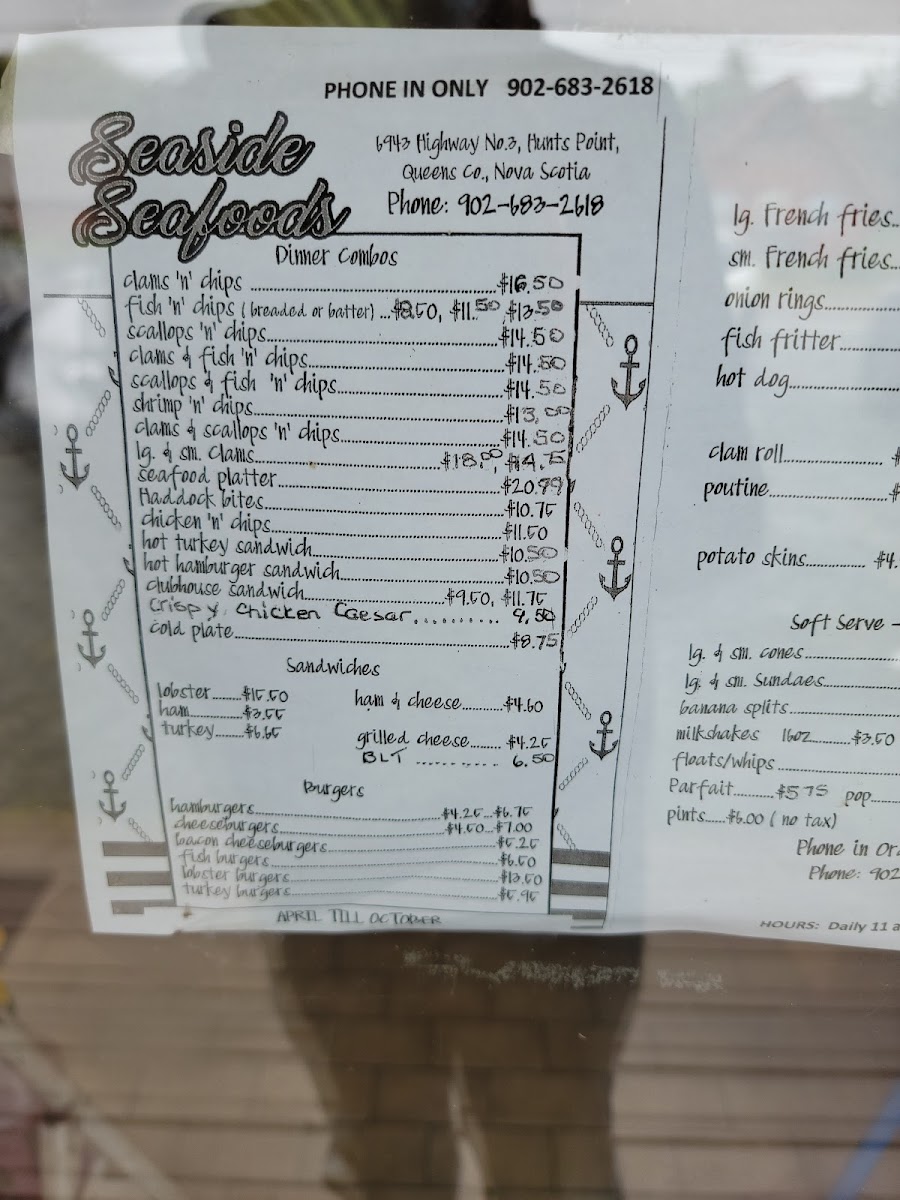 PHONE IN ONLY 902-683-2618
Seaside
Seafoods
6943 Highway No.3, Hunts Point,
Queens Co., Nova Scotia
Phone: 902-683-2618
Dinner Combos
clams 'n' chips ........ $16.50
fish 'n' chips ( breaded or batter) ... $8.50, $11.50, $13.50
scallops 'n' chips ........ $14.50
clams & fish 'n' chips ........ $14.50
scallops & fish 'n' chips ........ $14.50
shrimp 'n' chips ........ $13.00
clams & scallops 'n' chips ........ $14.50
lg. & sm. clams ........ $18.00, $14.75
seafood platter ........ $20.99
Haddock bites ........ $10.75
chicken 'n' chips ........ $11.50
hot turkey sandwich ........ $10.50
hot hamburger sandwich ........ $10.50
clubhouse sandwich ........ $9.50, $11.75
Crispy Chicken Caesar .......... 9.50
cold plate ........ $8.75
Sandwiches
lobster ........ $15.50
ham ........ $3.55
turkey ........ $6.65
ham & cheese ........ $4.60
grilled cheese ........ $4.25
BLT .......... 6.50
Burgers
hamburgers ........ $4.25...$6.75
cheeseburgers ........ $4.50...$7.00
bacon cheeseburgers ........ $5.25
fish burgers ........ $6.50
lobster burgers ........ $13.50
turkey burgers ........ $5.95
APRIL TILL OCTOBER
lg. French fries...
sm. French fries...
onion rings........
fish fritter........
hot dog........
clam roll........ $
poutine........ $
potato skins........ $4.
Soft Serve -
lg. & sm. cones........
lg. & sm. Sundaes........
banana splits........
milkshakes 16oz........ $3.50
floats/whips........
Parfait........ $5.75 pop........
pints..... $6.00 ( no tax)
Phone in Or
Phone: 902
HOURS: Daily 11 a